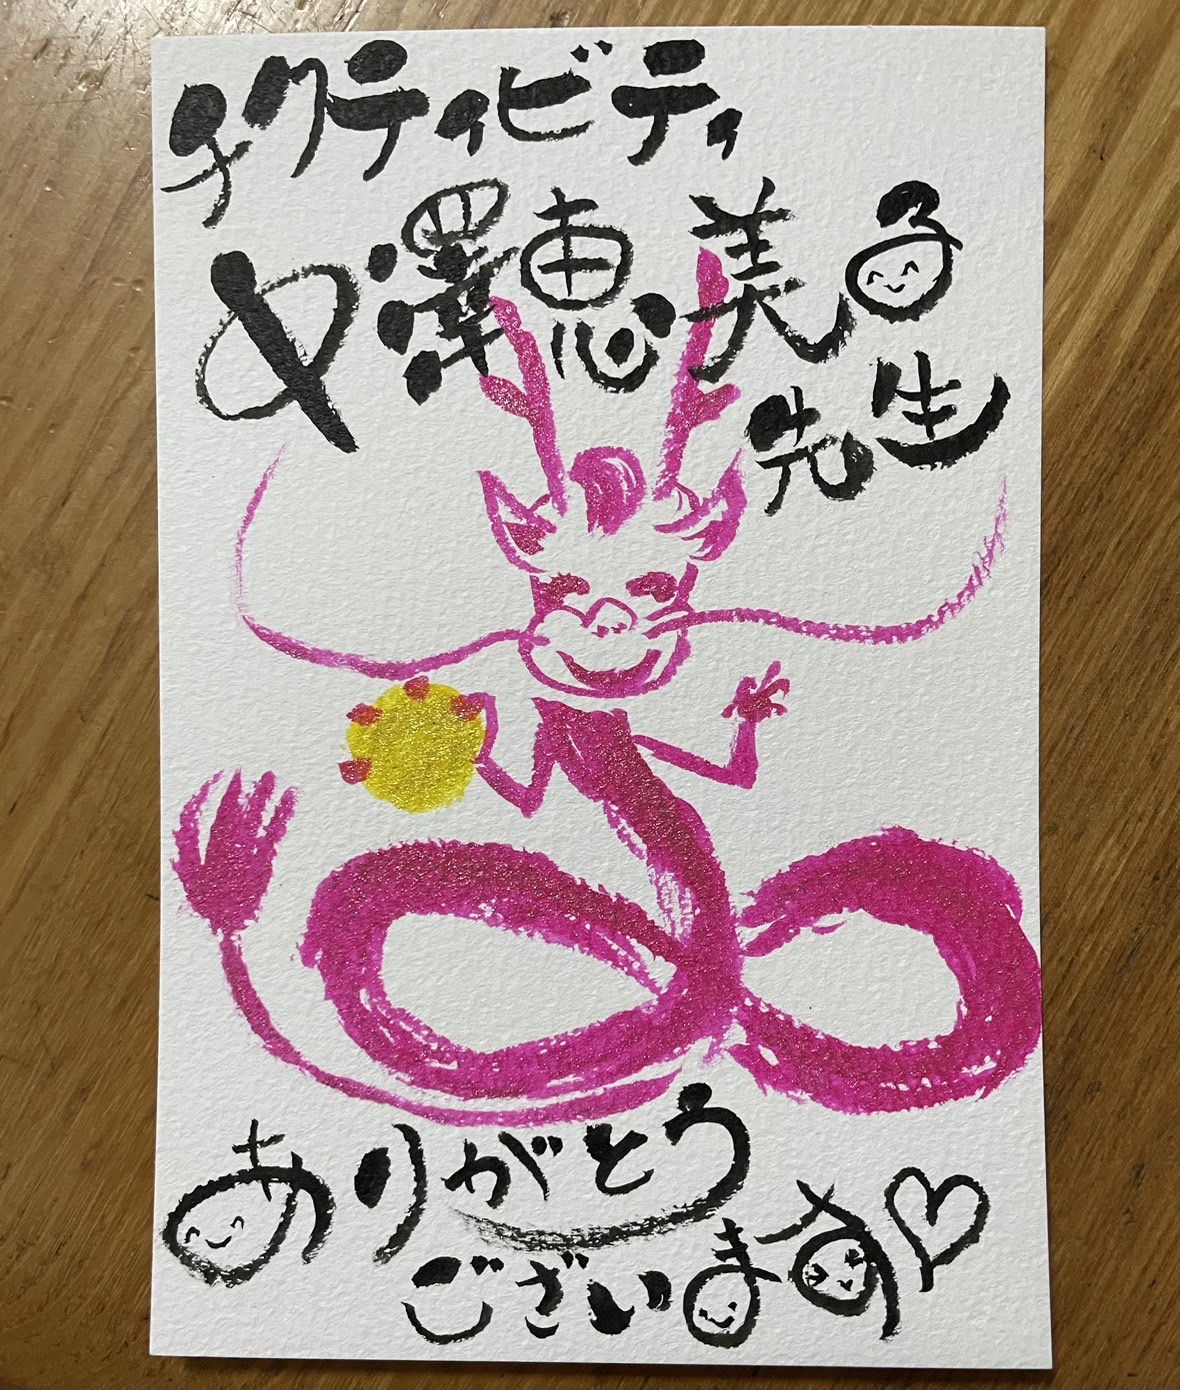 チクティビティ
中澤恵美子
先生
ありがとう
ございます♡